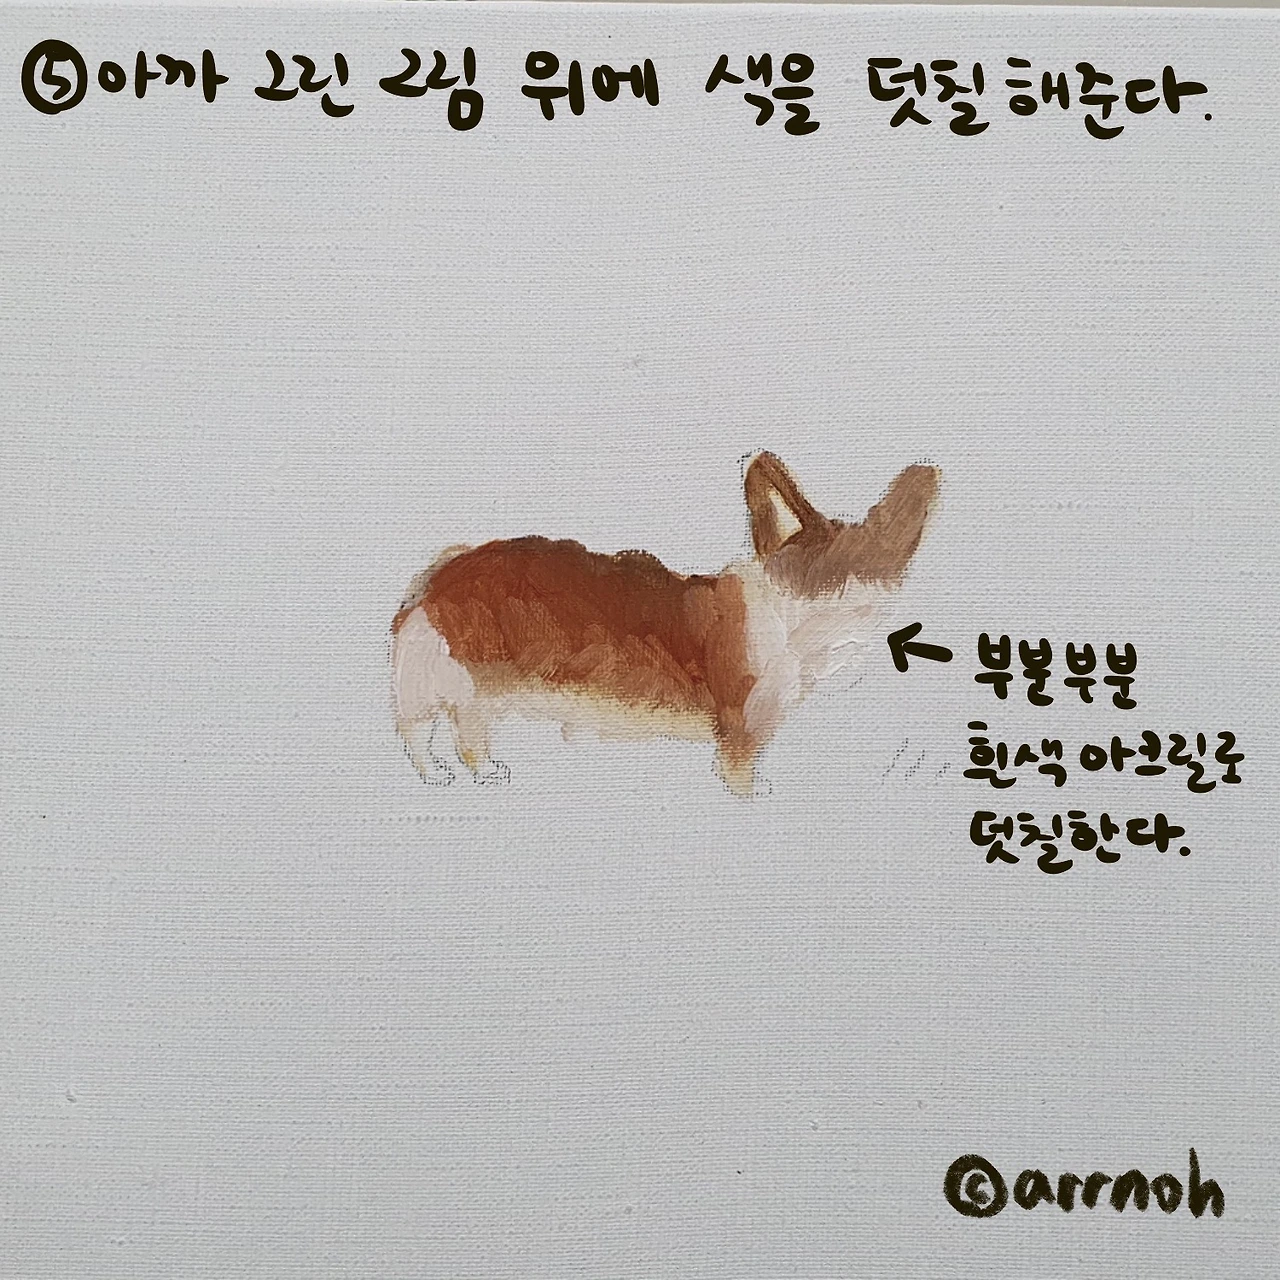 ⑤아까 그린 그림 위에 색을 덧칠해준다.
부분부분
흰색 아크릴로
덧칠한다.
©arrnoh